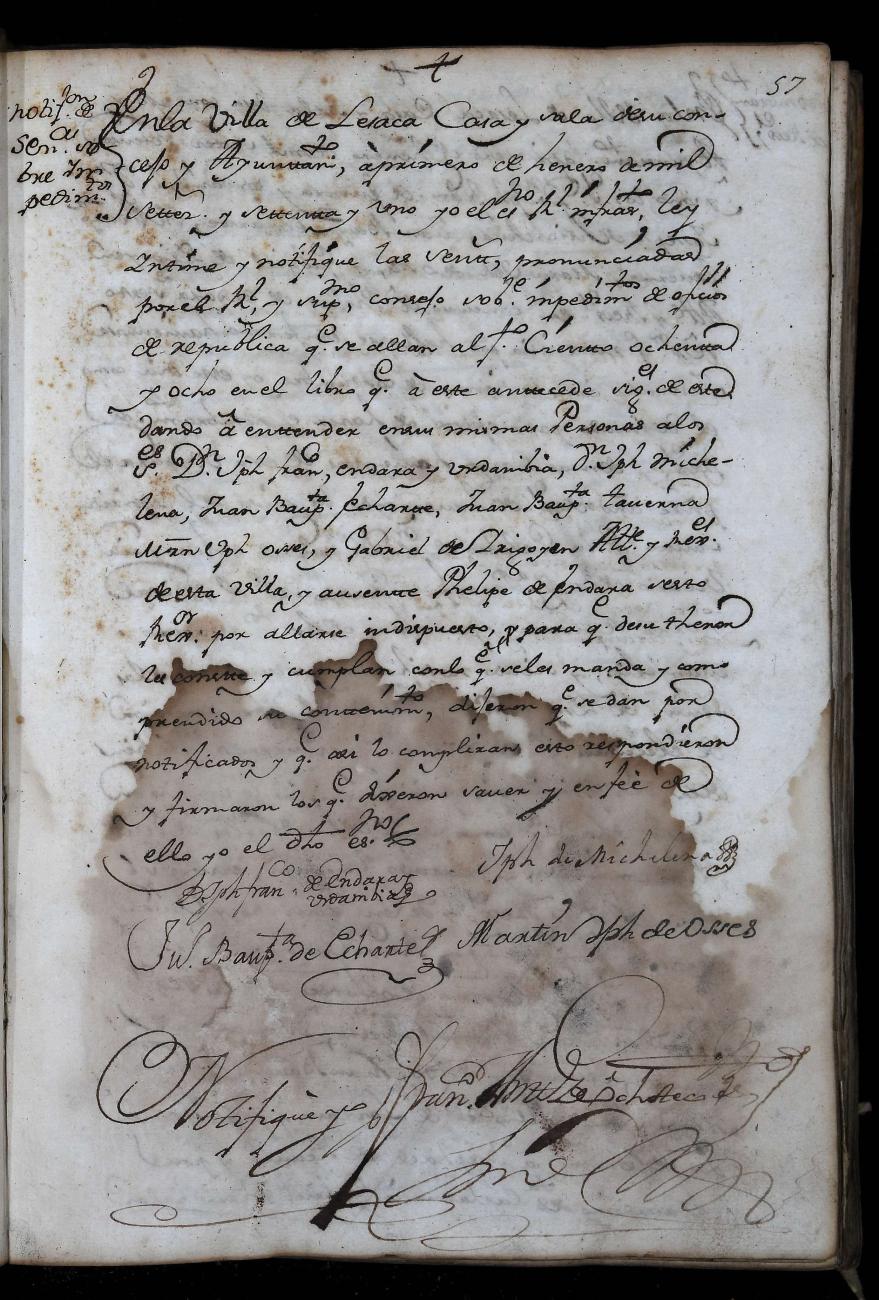 57
notifon de
Sen.as so
bre Im
pedim.tos
En la Villa de Lesaca Casa y sala de su con-
cejo y Ayuntam.to, à primero de henero de mil
setter. y settenta y uno yo el es.no R.l infras.to, ley
Intime y notifique las sentt.s, pronunciadas
por el R.l, y sup.mo, consejo sob.e inpedim.tos de oficios
de republica q.e se allan al f.o Ciento ochenta
y ocho en el libro q.e à este anttecede sig.es de este
dando à enttender en sus mismas Personas a los
S.es D.n Jph fran.co, endara y vrdanibia, d.n Jph Miche-
lena, Juan Baup.ta Echartte, Juan Baup.ta taverna
Mrn Jph osses, y Gabriel de Irigoyen Alle. y Rex.es
de esta Villa, y ausentte Phelipe de Endara sesto
Rex.or por allarse indispuesto, y para q.e de su thenor
les constte y cumplan con lo q.e se les manda y como
prendido su conttenim.to, dijeron q.e se dan por
notificados y q.e asi lo compliran esto respondieron
y firmaron los q.e dixeron saver y en feè de
ello yo el dho es.no
Jph de Michelena
D Jph fran.co de Endara y
vrdanibia
Ju.n Baup.ta de Echarte
Martin Jph de Osses
Notifiquè yo Fran.co Ant.o de Ochoteco